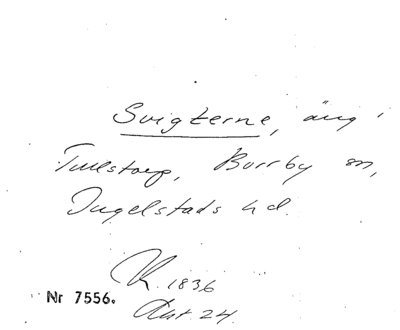 Svigterne, äng i
Tullstorp, Borrby sn,
Ingelstads hd.
K. 1836
Nr 7556.
Akt 24.